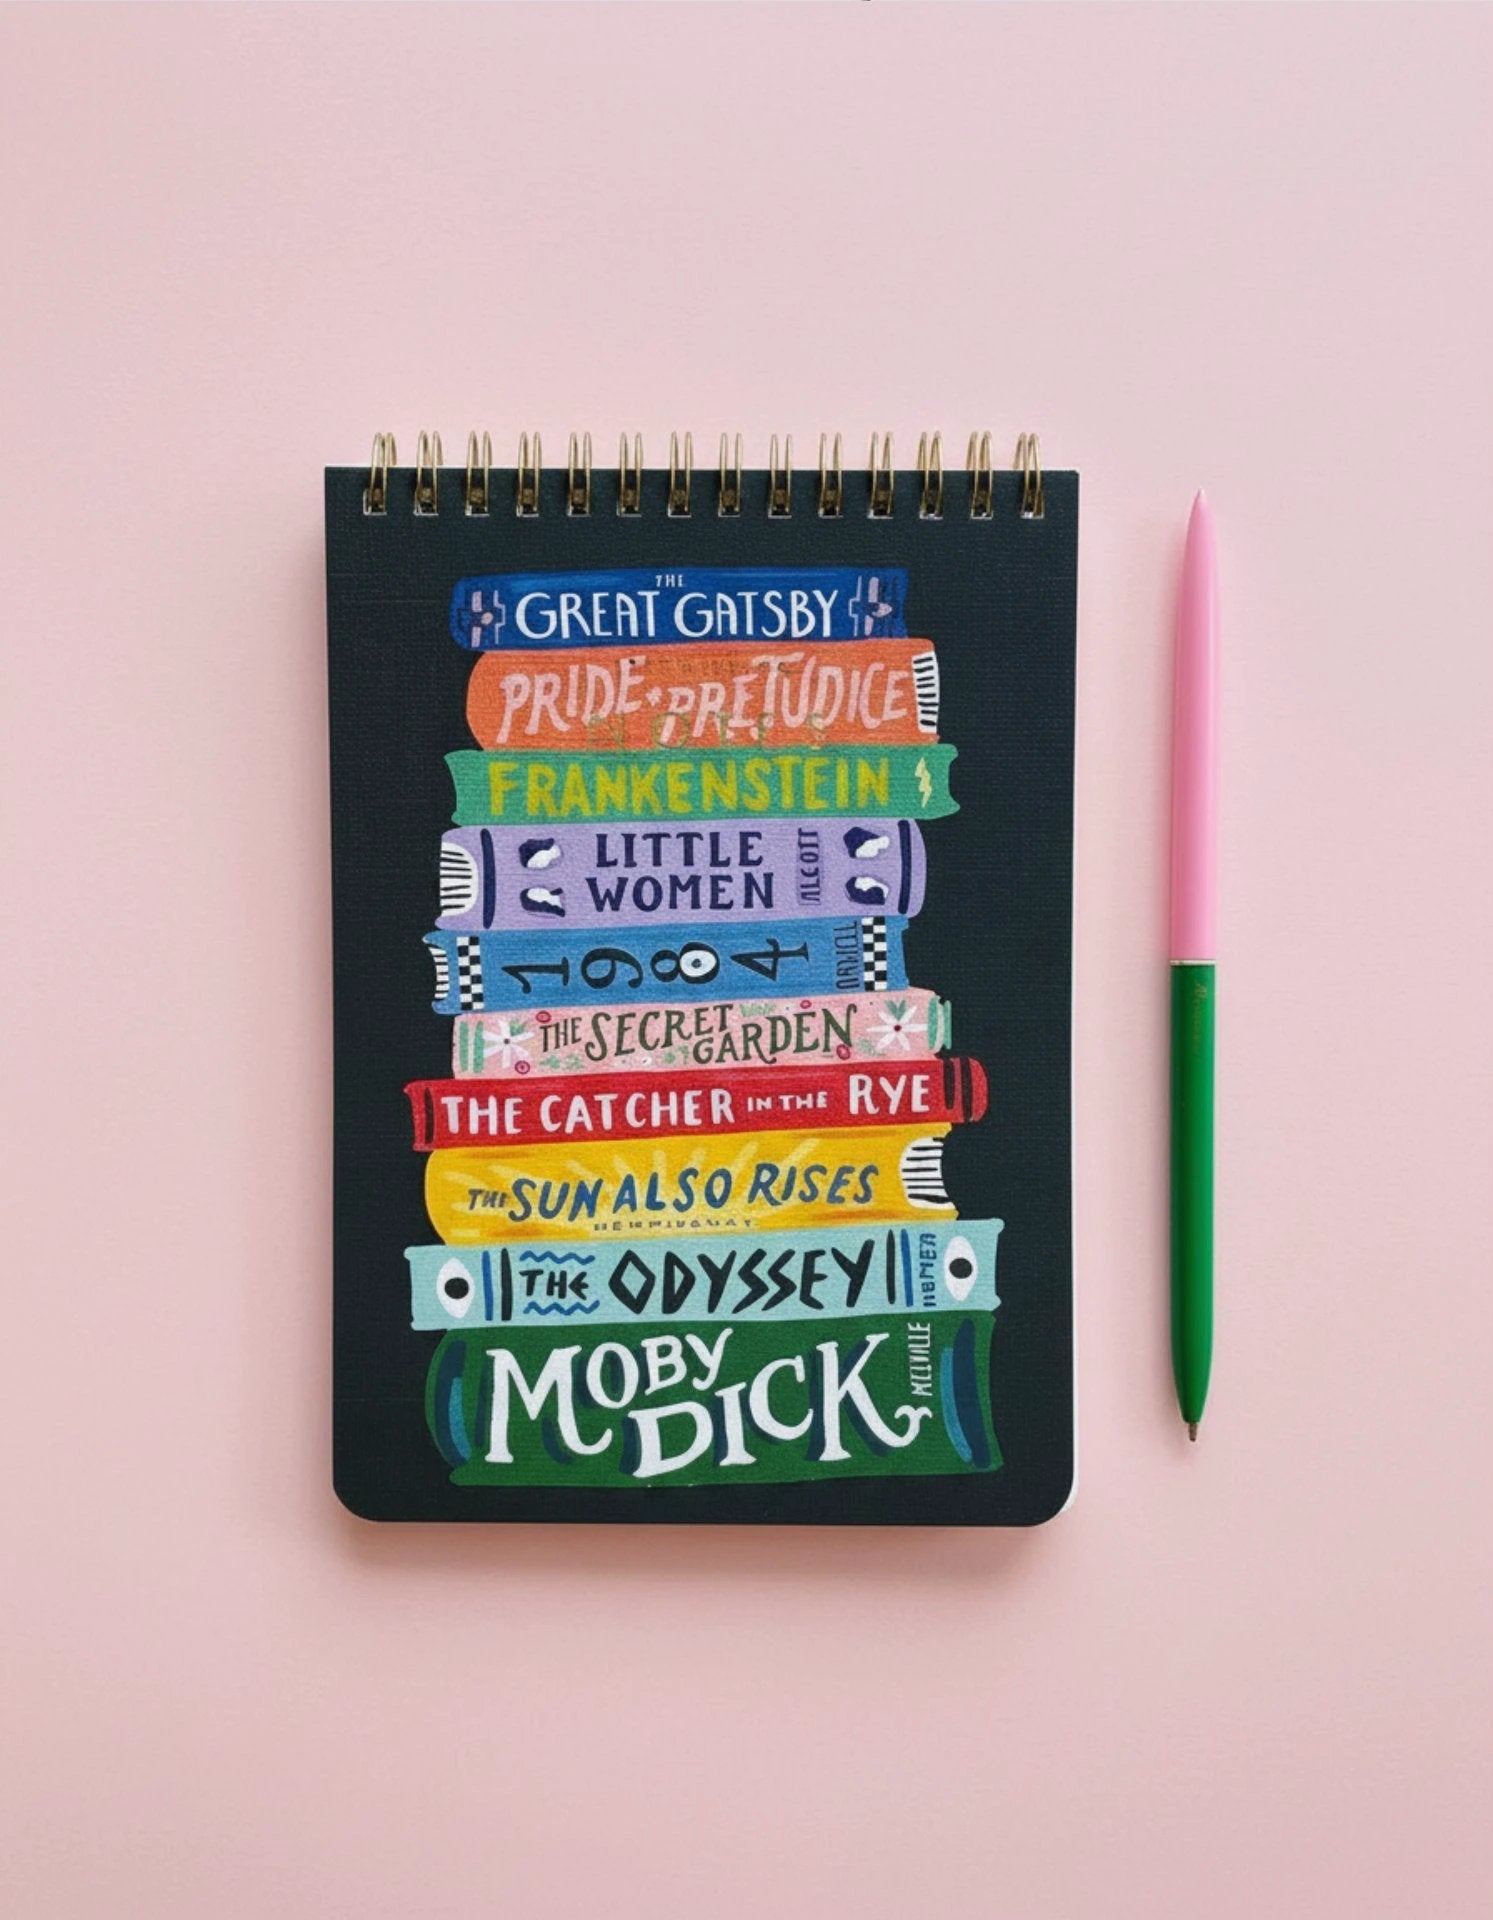 THE
GREAT GATSBY
PRIDE + PREJUDICE
NOTES
FRANKENSTEIN
LITTLE
WOMEN
ALCOTT
1984
ORWELL
THE SECRET
GARDEN
THE CATCHER IN THE RYE
THE SUN ALSO RISES
HEMINGWAY
THE ODYSSEY
HOMER
MOBY
DICK
MELVILLE